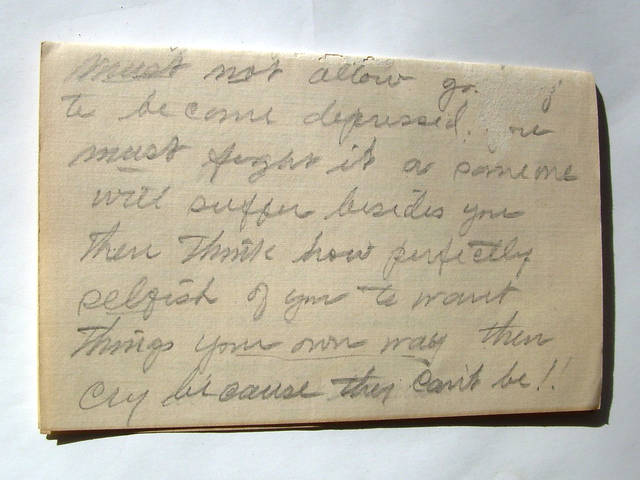 must not allow
to become depressed. you
must fight it or someone
will suffer besides you
then think how perfectly
selfish of you to want
things your own way then
cry because they can't be!!